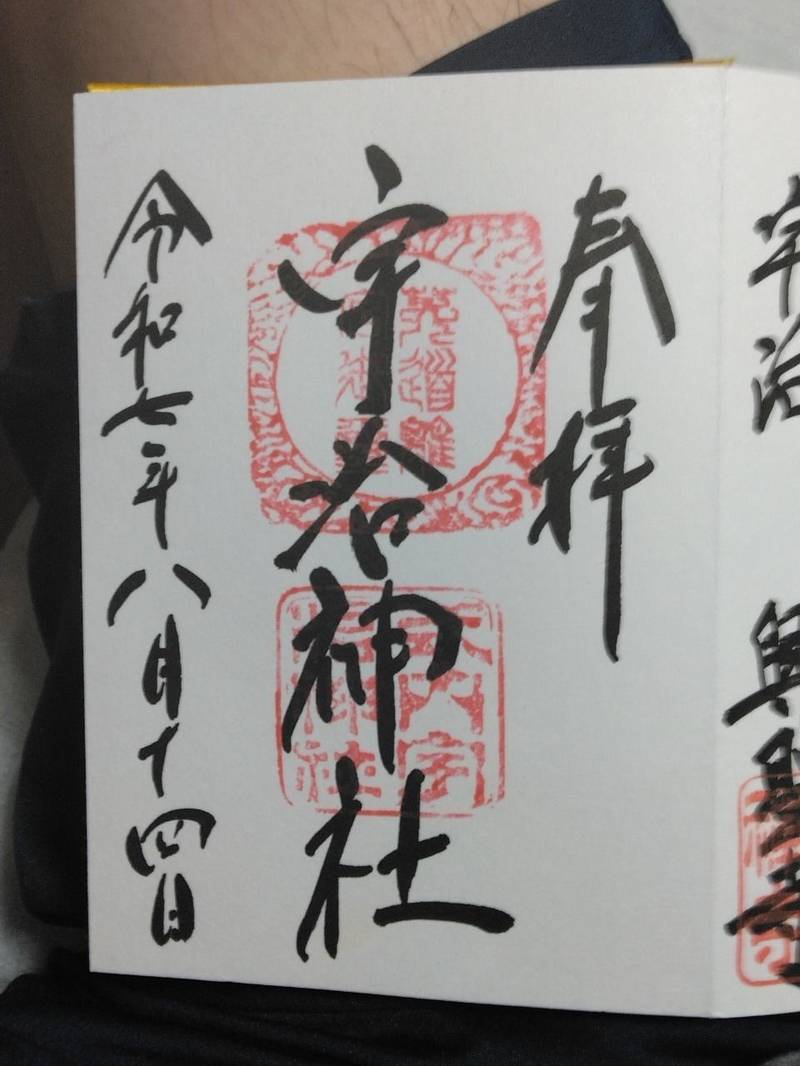 宇治
興聖寺
奉拝
宇治神社
式内宇
治神社
令和七年八月十四日